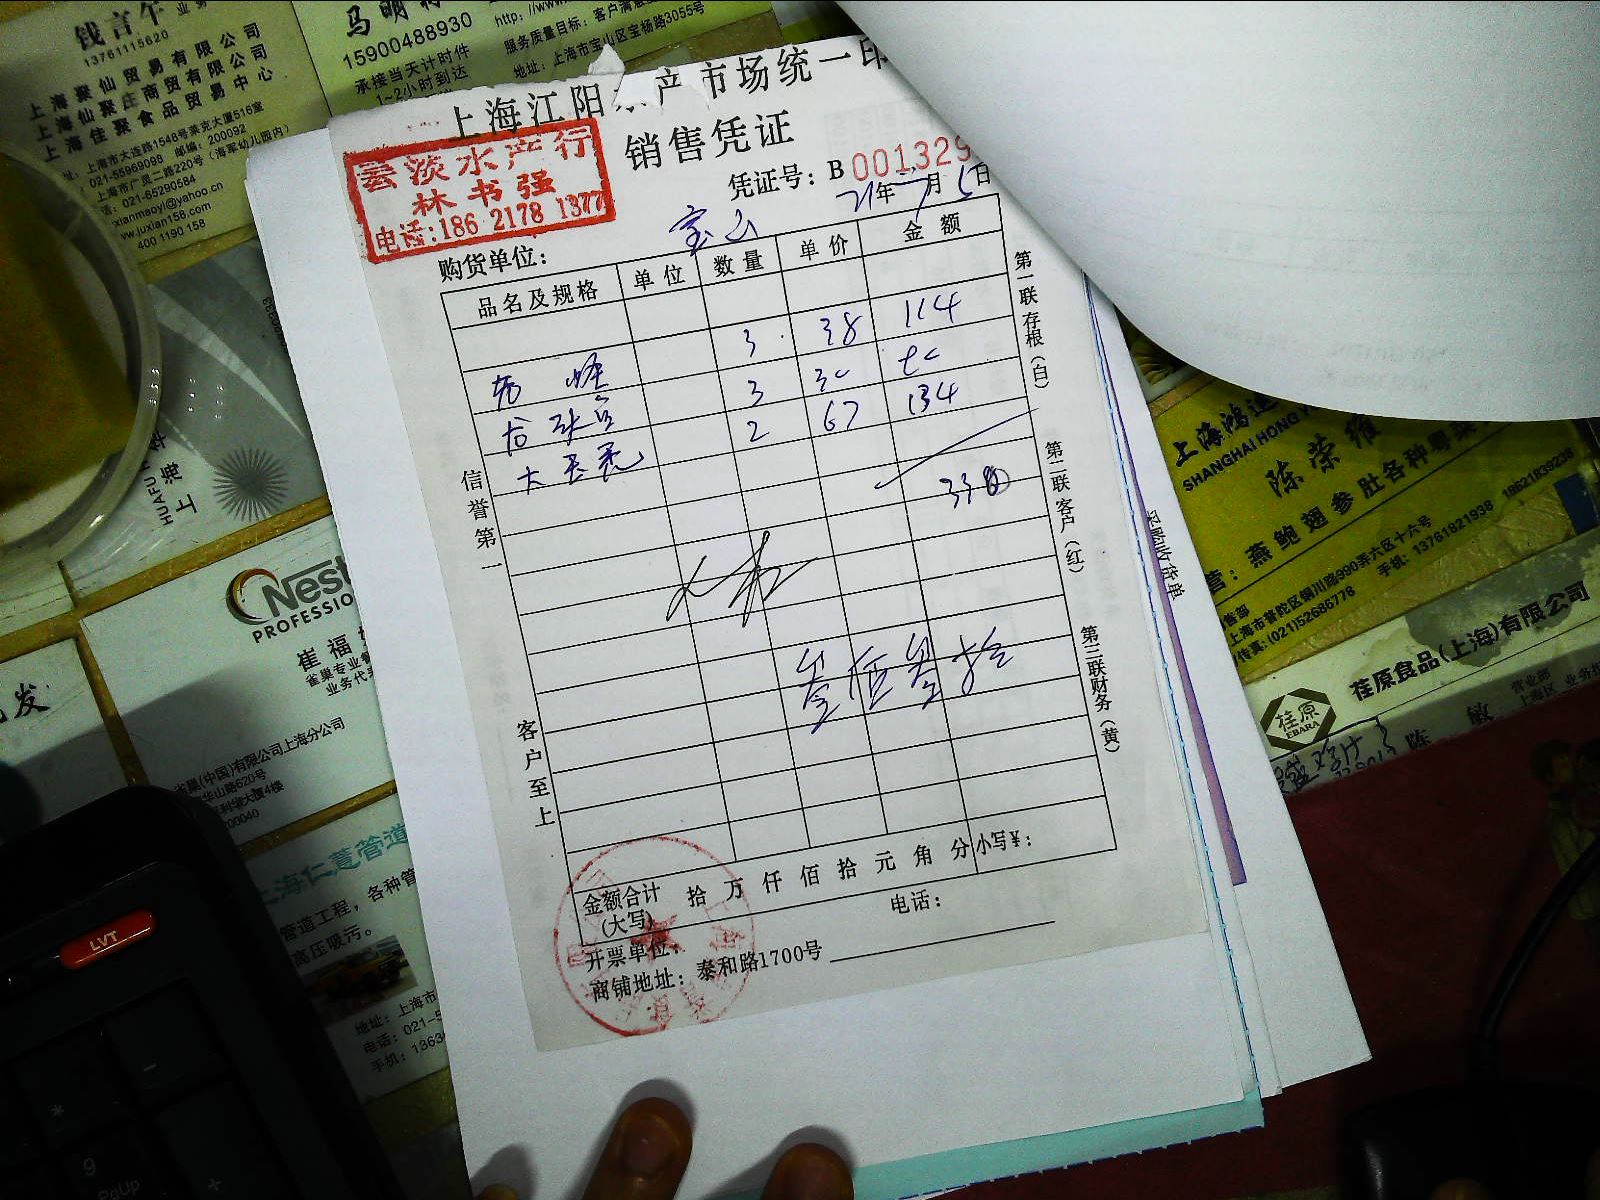 钱言午 业务
13761115620
上海聚仙贸易有限公司
上海仙聚庄商贸有限公司
上海佳聚食品贸易中心
上海市大连路1548号莱克大厦516室
021-55969098 邮编：200092
上海市广灵二路220号（海军幼儿园内）
021-65290584
xianmaoyi@yahoo.cn
yw.juxian158.com
400 1190 158
马明
15900488930
承接当天计时件
1~2小时到达
http://www
服务质量目标：客户满意
地址：上海市宝山区宝杨路3055号
上海江阳水产市场统一印
销售凭证
凭证号：B 001329
21年 月5日
云淡水产行
林书强
电话:186 2178 1377
购货单位：宝山
品名及规格 单位 数量 单价 金额
3 38 114
3 30
2 67 134
330
叁佰叁拾
信誉第一
客户至上
第一联存根（白）
第二联客户（红）
第三联财务（黄）
金额合计（大写） 拾 万 仟 佰 拾 元 角 分 小写¥：
开票单位： 电话：
商铺地址：泰和路1700号
采购收货单
HUAFU H
上海
Nest
PROFESSIO
崔福
雀巢专业餐
业务代
雀巢(中国)有限公司上海分公司
华山路620号
200040
发
上海仁薏管道
管道工程，各种管
高压吸污。
地址：上海市
电话：021-5
手机：1363
LVT
9
PgUp
上海鸿运
SHANGHAI HONG Y
陈荣
营：燕鲍翅参肚各种粤
售部
上海市普陀区铜川路990弄六区十六号
传真:(021)52686778
手机：13761821938 18621839238
荏原
EBARA
荏原食品(上海)有限公司
营业部
上海区 业务
陈敏